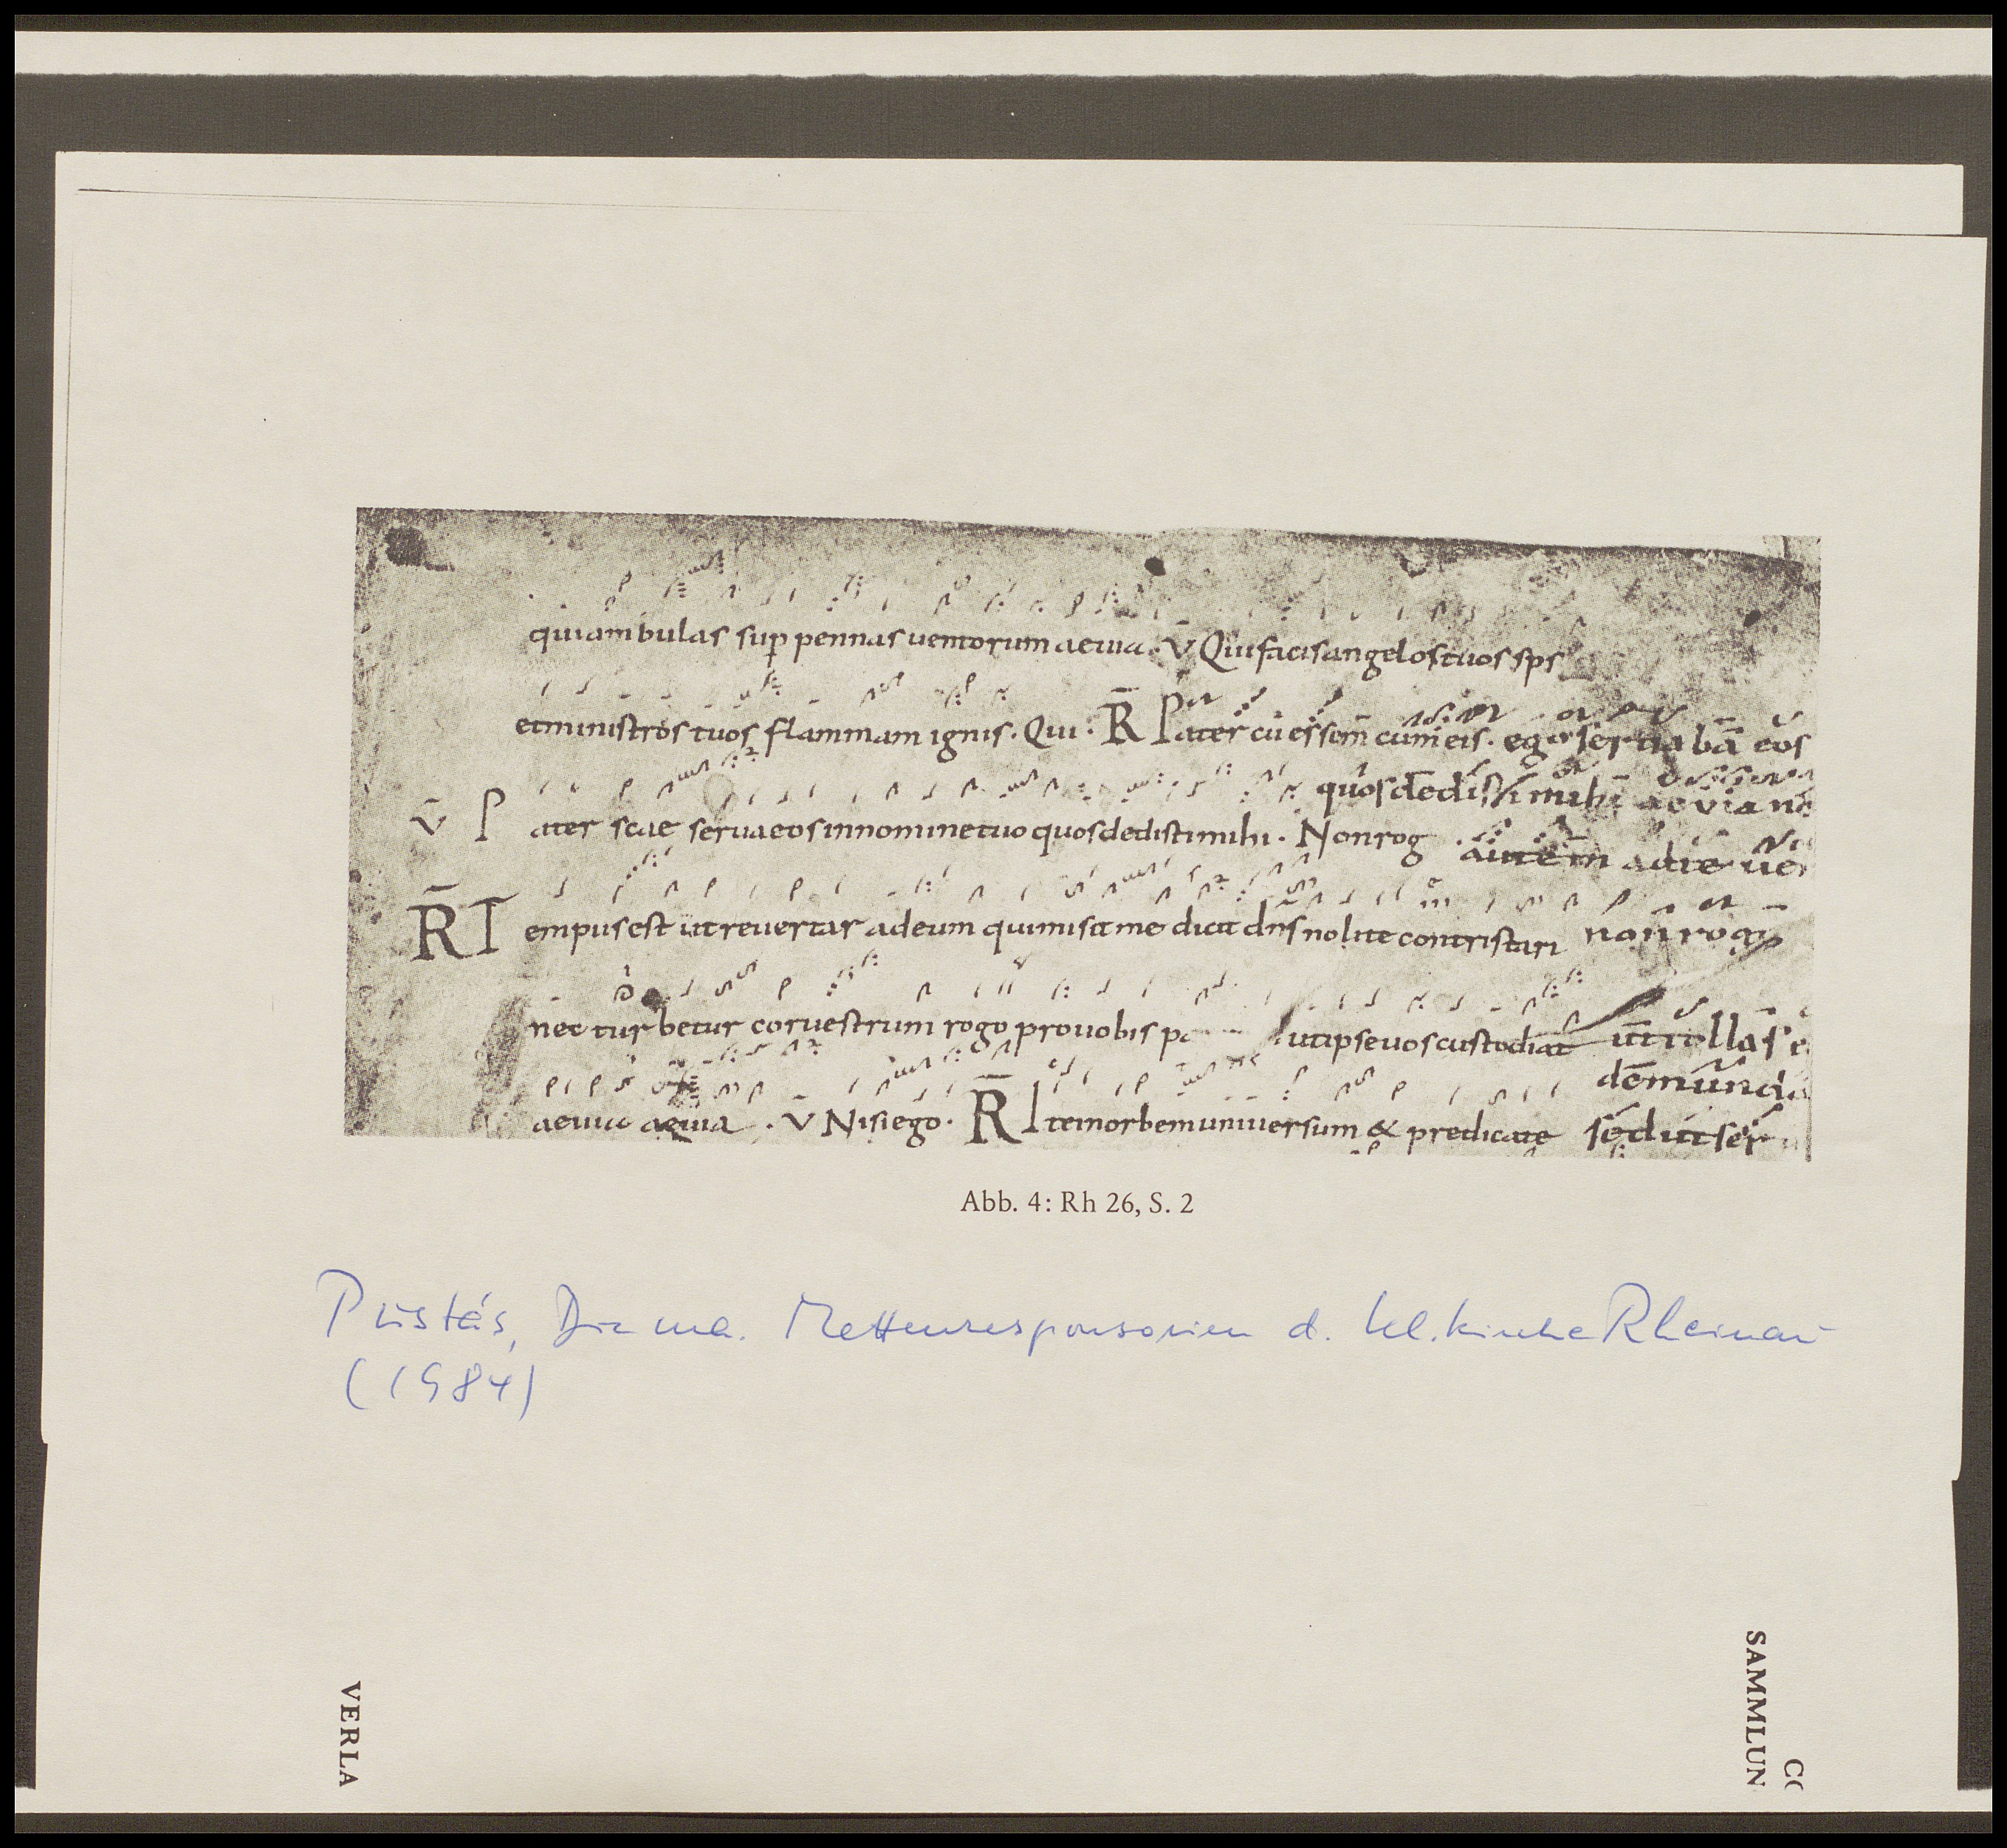 quiambulas sup pennas uentorum aeuia. V Quifacisangelostuos sps
etministros tuos flammam ignis. Qui. R Pater cū essem cum eis. ego seruabā eos
quosdedisti mihi aeuia
V Pater scae seruaeosinnominetuo quosdedistimihi. Nonrog
autem adte
R Tempusest utreuertar adeum quimisitme dicit dns nolite contristari non rog
nec turbetur coruestrum rogo prouobis utipseuoscustodiat ut tollas
aeuia aeuia. V Nisiego. R Iteinorbemuniuersum & predicate
demund
sed ut ser
Abb. 4: Rh 26, S. 2
Püstás, Die ma. Mettenresponsorien d. Kl.kirche Rheinau
(1984)
VERLA
SAMMLUN
CO